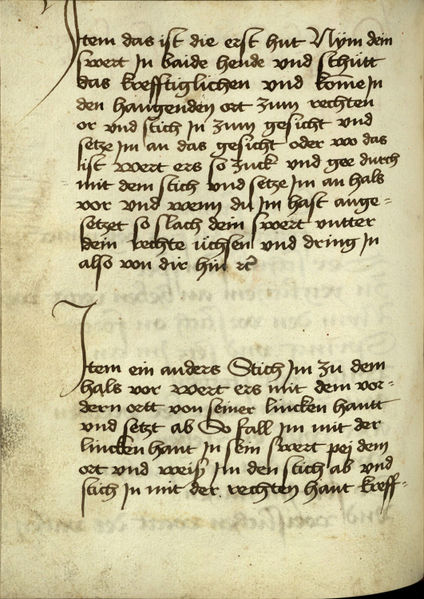 Item das ist die erst hut Nÿm dein
swert In baide hende und schütt
das krefftiglichen und kome In
den hangenden ort zum rechten
or und stich In zum gesicht und
setze im an das gesicht oder wo das
ist wert ers so zuck und gee durch
mit dem stich und setze Im an hals
vor und wenn du Im hast ange-
setzet so slach dein swert untter
dein rechte üchsen und dring In
also von dir hin
Item ein anders Stich Im zu dem
hals vor wert ers mit dem vor-
dern ortt von seiner lincken hantt
und setzt ab So fall im mit der
lincken hant In sein swert pei dem
ort und weiß Im den stich ab und
stich In mit der rechten hant kreff-